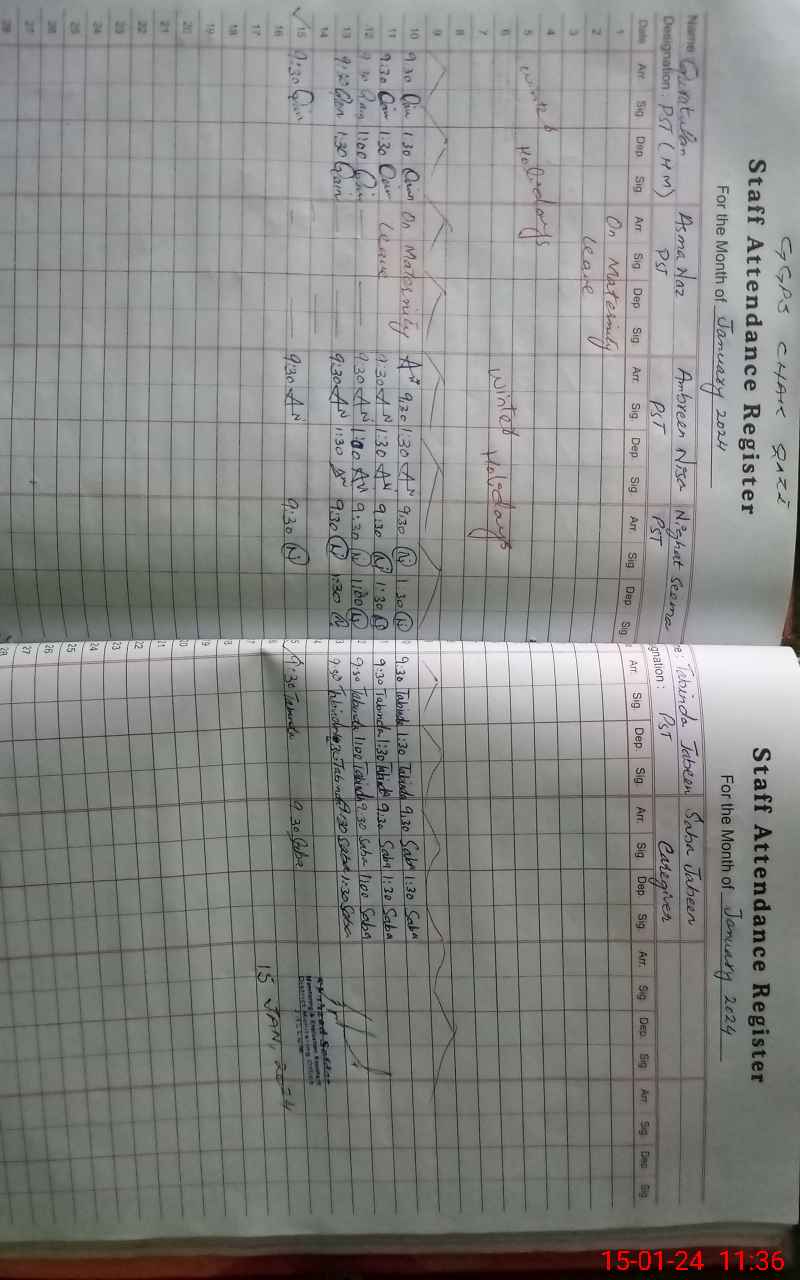 GGPS CHAK QAZI
Staff Attendance Register
For the Month of January 2024
Name Asma Naz Ambreen Nisa Nighat Seema
Designation: PST (HM) PST PST PST
Date Arr. Sig. Dep. Sig. Arr. Sig. Dep. Sig. Arr. Sig. Dep. Sig. Arr. Sig. Dep. Sig.
1 On Maternity
2 Leave
3
4
5 Winter Holidays
6 Winter Holidays
7
8
9
10 9:30 1:30 On Maternity AN 9:30 1:30 AN 9:30 N 1:30 N
11 9:30 1:30 Leave 9:30 AN 1:30 AN 9:30 N 1:30 N
12 9:30 1:00 9:30 AN 1:00 AN 9:30 N 1:00 N
13 9:30 1:30 9:30 AN 1:30 AN 9:30 N 1:30 N
14
15 9:30 9:30 AN 9:30 N
16
17
18
19
20
21
22
23
24
25
26
27
28
Staff Attendance Register
For the Month of January 2024
Tabinda Jabeen Saba Jabeen
gnation: PST Caregiver
Arr. Sig. Dep. Sig. Arr. Sig. Dep. Sig. Arr. Sig. Dep. Sig. Arr. Sig. Dep. Sig.
9:30 Tabinda 1:30 Tabinda 9:30 Saba 1:30 Saba
9:30 Tabinda 1:30 Tabinda 9:30 Saba 1:30 Saba
9:30 Tabinda 1:00 Tabinda 9:30 Saba 1:00 Saba
9:30 Tabinda 1:30 Tabinda 9:30 Saba 1:30 Saba
9:30 Tabinda 9:30 Saba
15 JAN, 2024
19
20
21
22
23
24
25
26
27
28
15-01-24 11:36